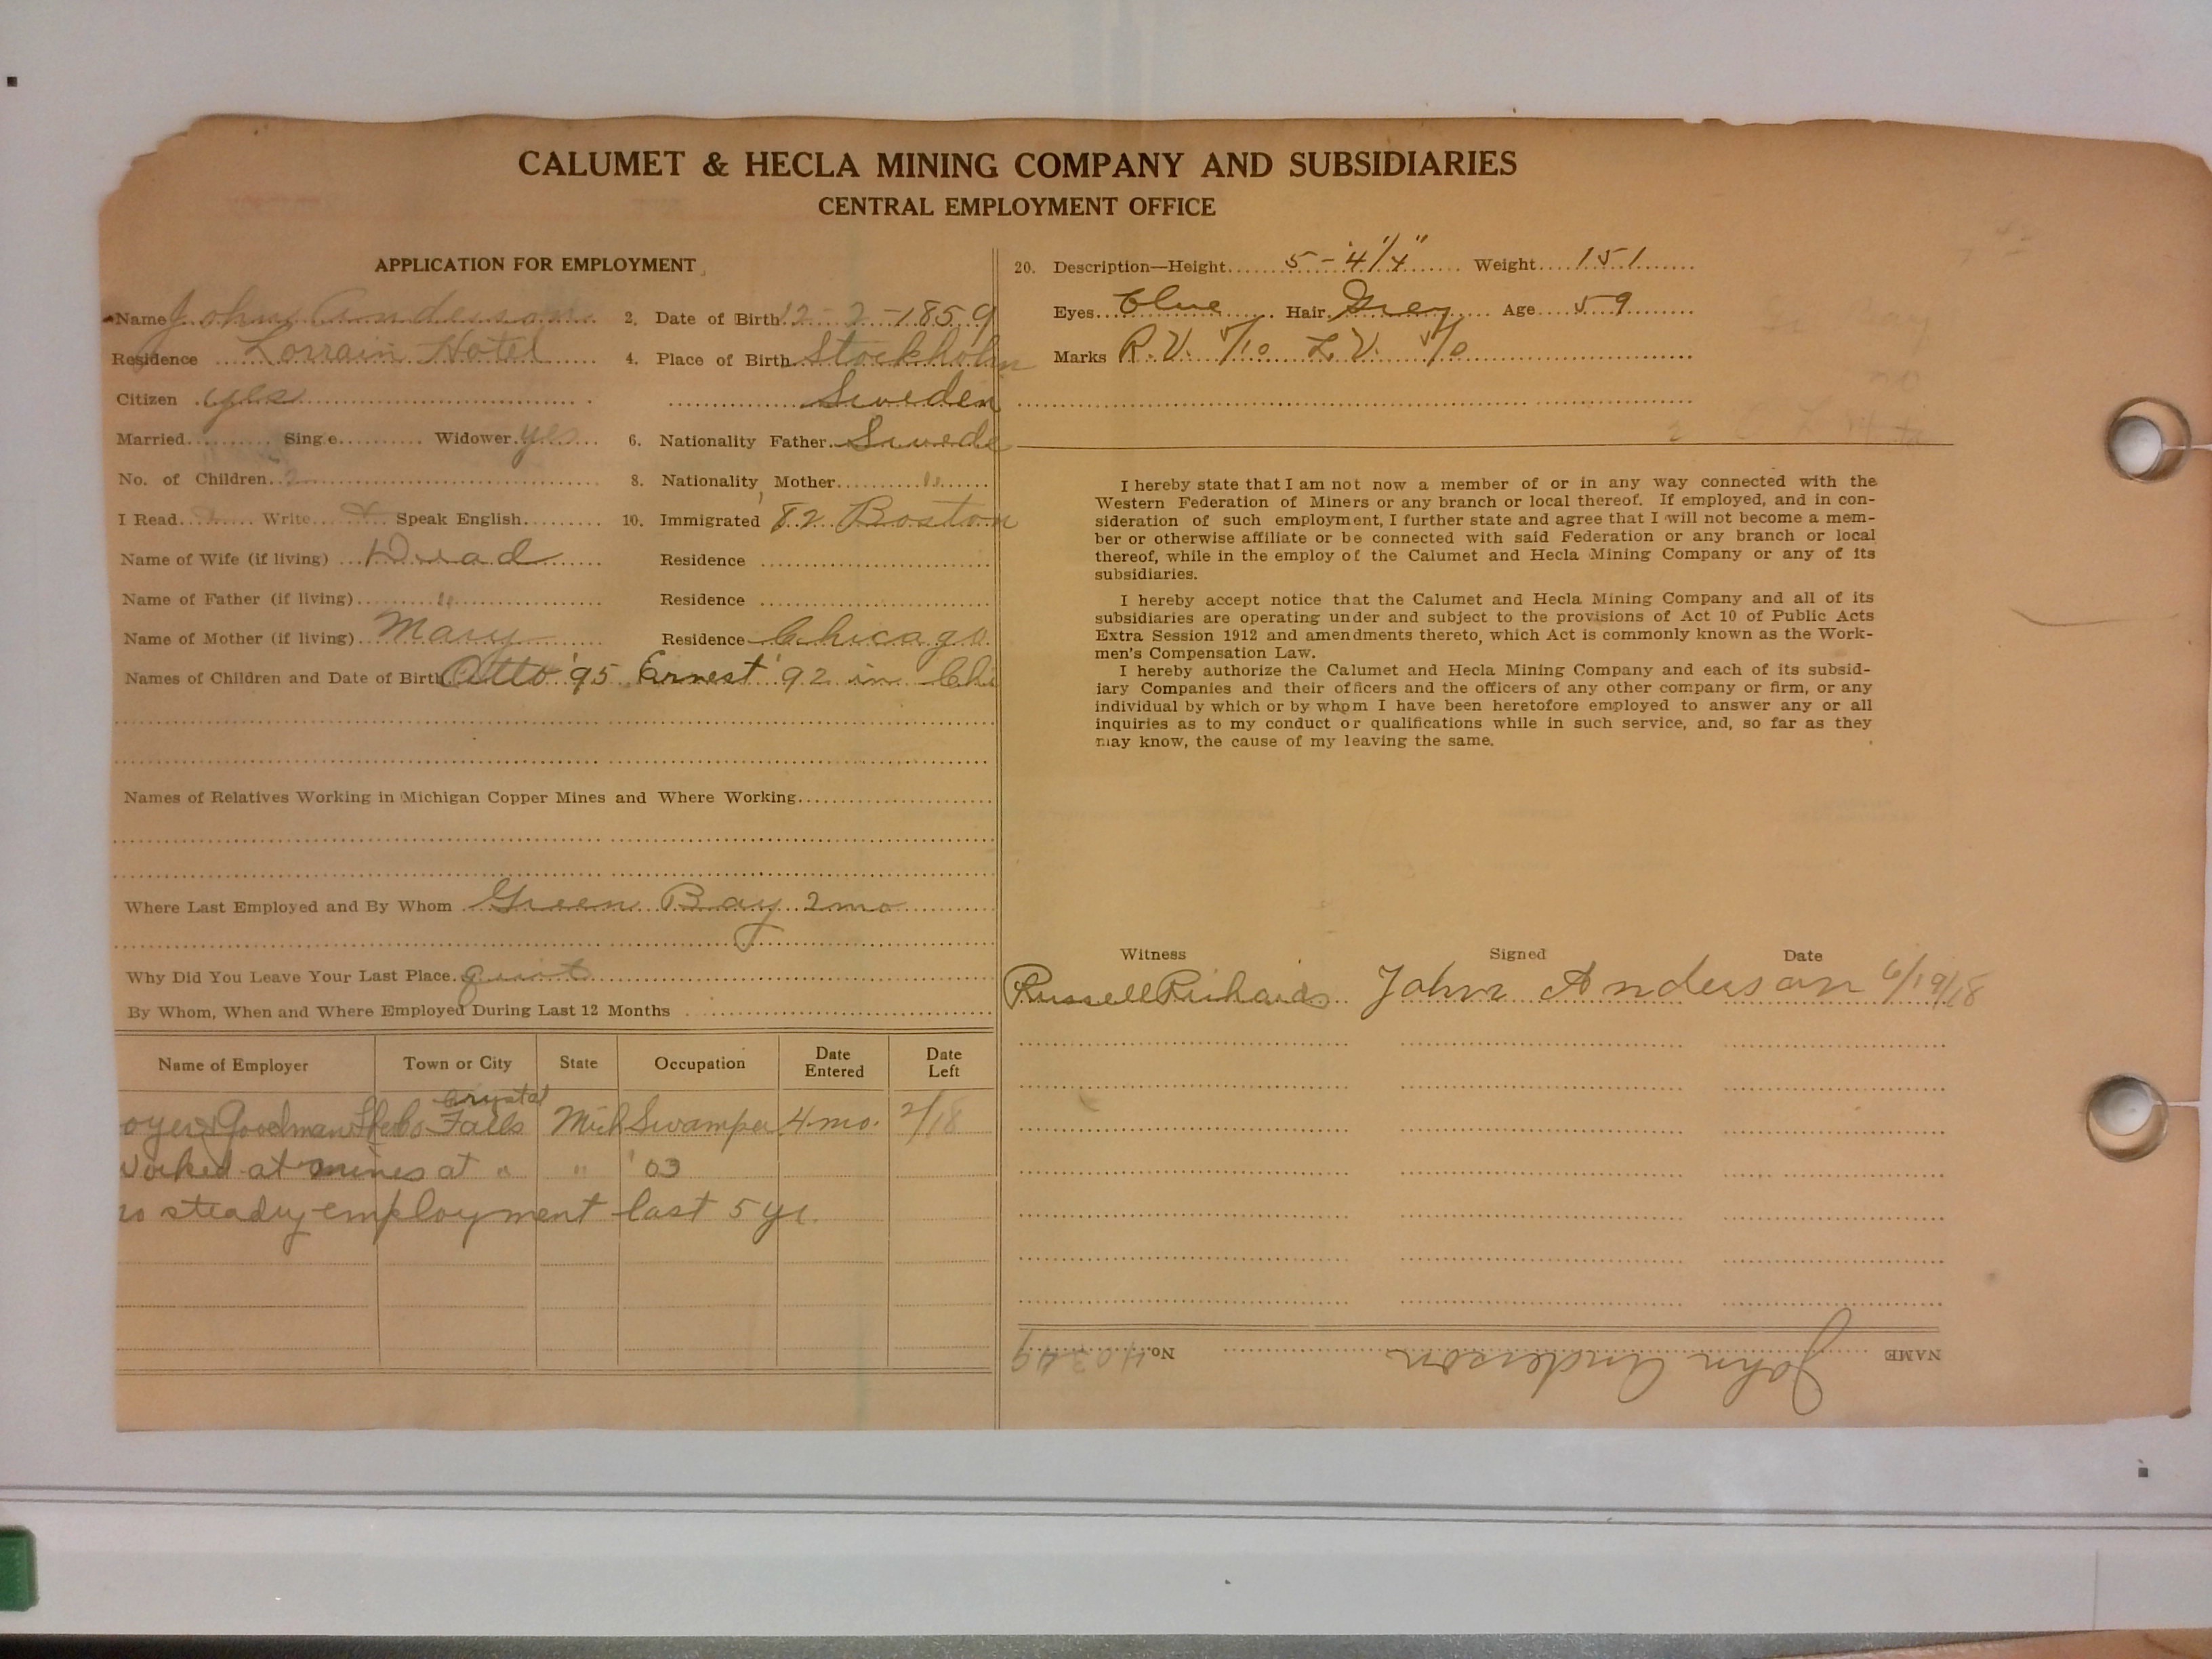 CALUMET & HECLA MINING COMPANY AND SUBSIDIARIES
CENTRAL EMPLOYMENT OFFICE
APPLICATION FOR EMPLOYMENT
Name John Anderson 2. Date of Birth 12-2-1859
Residence Lorrain Hotel 4. Place of Birth Stockholm
Citizen yes Sweden
Married Single Widower yes 6. Nationality Father Swede
No. of Children 2 8. Nationality Mother "
I Read Write Speak English 10. Immigrated 82 Boston
Name of Wife (if living) Dead Residence
Name of Father (if living) " Residence
Name of Mother (if living) Mary Residence Chicago
Names of Children and Date of Birth Otto '95 Ernest '92 in Chi
Names of Relatives Working in Michigan Copper Mines and Where Working
Where Last Employed and By Whom Green Bay 2 mo
Why Did You Leave Your Last Place quit
By Whom, When and Where Employed During Last 12 Months
Name of Employer Town or City State Occupation Date Entered Date Left
Crystal
oyer Goodman Falls Mich Swamper 4 mo. 2/18
Worked at mines at " " '03
no steady employment last 5 yr.
20. Description—Height 5-4 1/4" Weight 151
Eyes blue Hair Grey Age 59
Marks R.V. /10 L.V. /10
I hereby state that I am not now a member of or in any way connected with the
Western Federation of Miners or any branch or local thereof. If employed, and in con-
sideration of such employment, I further state and agree that I will not become a mem-
ber or otherwise affiliate or be connected with said Federation or any branch or local
thereof, while in the employ of the Calumet and Hecla Mining Company or any of its
subsidiaries.
I hereby accept notice that the Calumet and Hecla Mining Company and all of its
subsidiaries are operating under and subject to the provisions of Act 10 of Public Acts
Extra Session 1912 and amendments thereto, which Act is commonly known as the Work-
men's Compensation Law.
I hereby authorize the Calumet and Hecla Mining Company and each of its subsid-
iary Companies and their officers and the officers of any other company or firm, or any
individual by which or by whom I have been heretofore employed to answer any or all
inquiries as to my conduct or qualifications while in such service, and, so far as they
may know, the cause of my leaving the same.
Witness Signed Date
Russell Richards John Anderson 6/19/18
NAME John Anderson No.